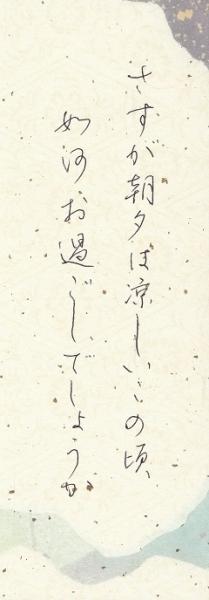 さすが朝夕は涼しいこの頃、
如何お過ごしでしょうか